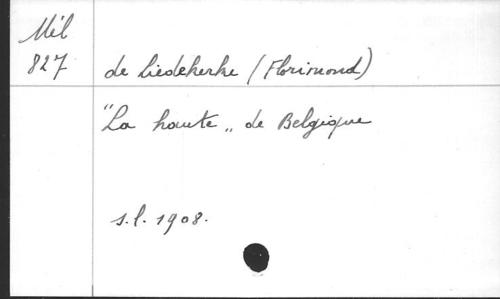 Mél
827
de Liedekerke (Florimond)
"La haute„ de Belgique
s.l. 1908.